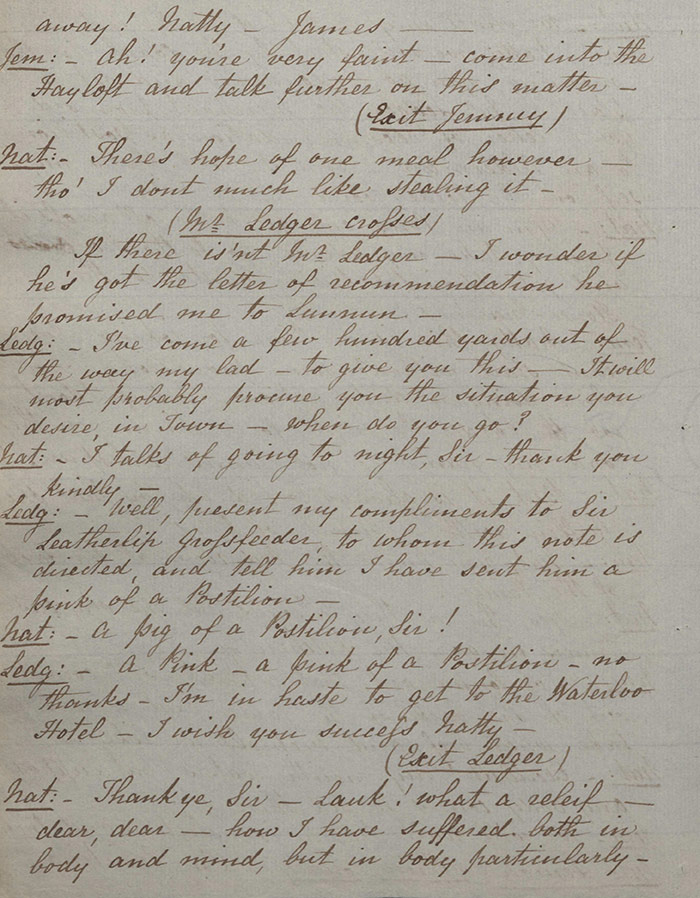 away! Natty - James —
Jem: - Ah! you're very faint - come into the
Hayloft and talk further on this matter -
(Exit Jemmy)
Nat: - There's hope of one meal however —
tho' I dont much like stealing it -
(Mr Ledger crosses)
If there is'nt Mr Ledger - I wonder if
he's got the letter of recommendation he
promised me to Lunnun -
Ledg: - I've come a few hundred yards out of
the way my lad - to give you this — It will
most probably procure you the situation you
desire, in Town - when do you go?
Nat: - I talks of going to night, Sir - thank you
kindly -
Ledg: - Well, present my compliments to Sir
Leatherlip Grossfeeder, to whom this note is
directed, and tell him I have sent him a
pink of a Postilion -
Nat: - A pig of a Postilion, Sir!
Ledg: - A Pink - a pink of a Postilion - no
thanks - I'm in haste to get to the Waterloo
Hotel - I wish you success Natty -
(Exit Ledger)
Nat: - Thank ye, Sir - Lauk! what a releif —
dear, dear - how I have suffered both in
body and mind, but in body particularly -